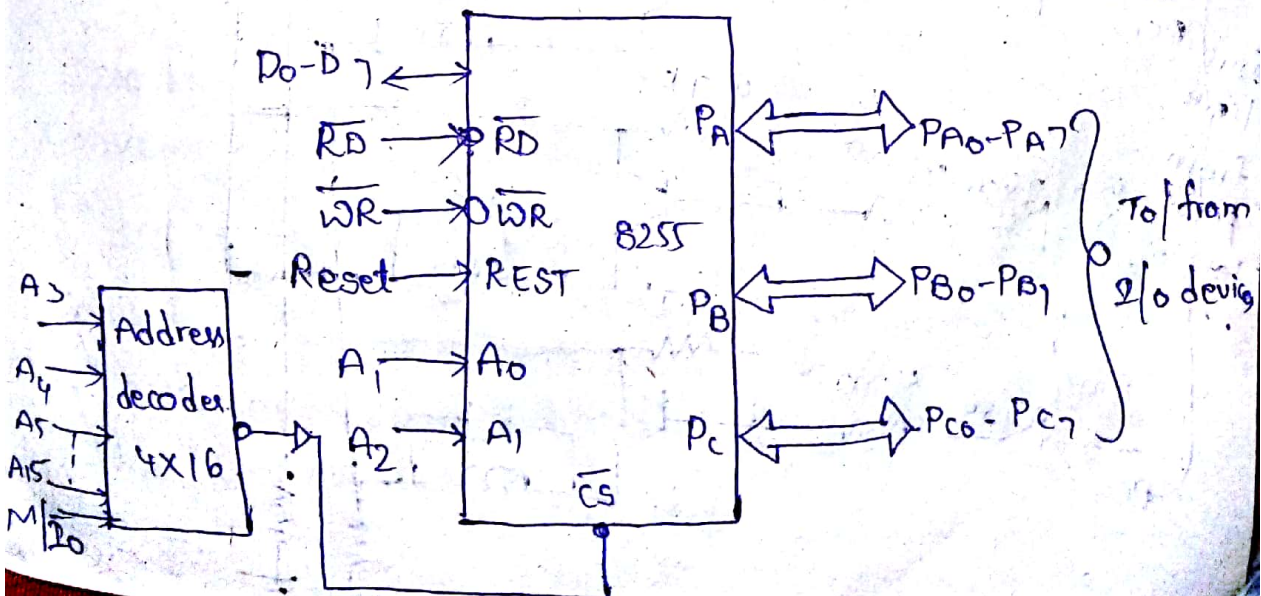 D0-D7
RD RD
WR WR
Reset REST
A1 A0
A2 A1
CS
8255
PA PA0-PA7
PB PB0-PB7
PC PC0-PC7
To/from
I/o devices
A3
A4
A5
A15
M/Io
Address
decoder
4X16